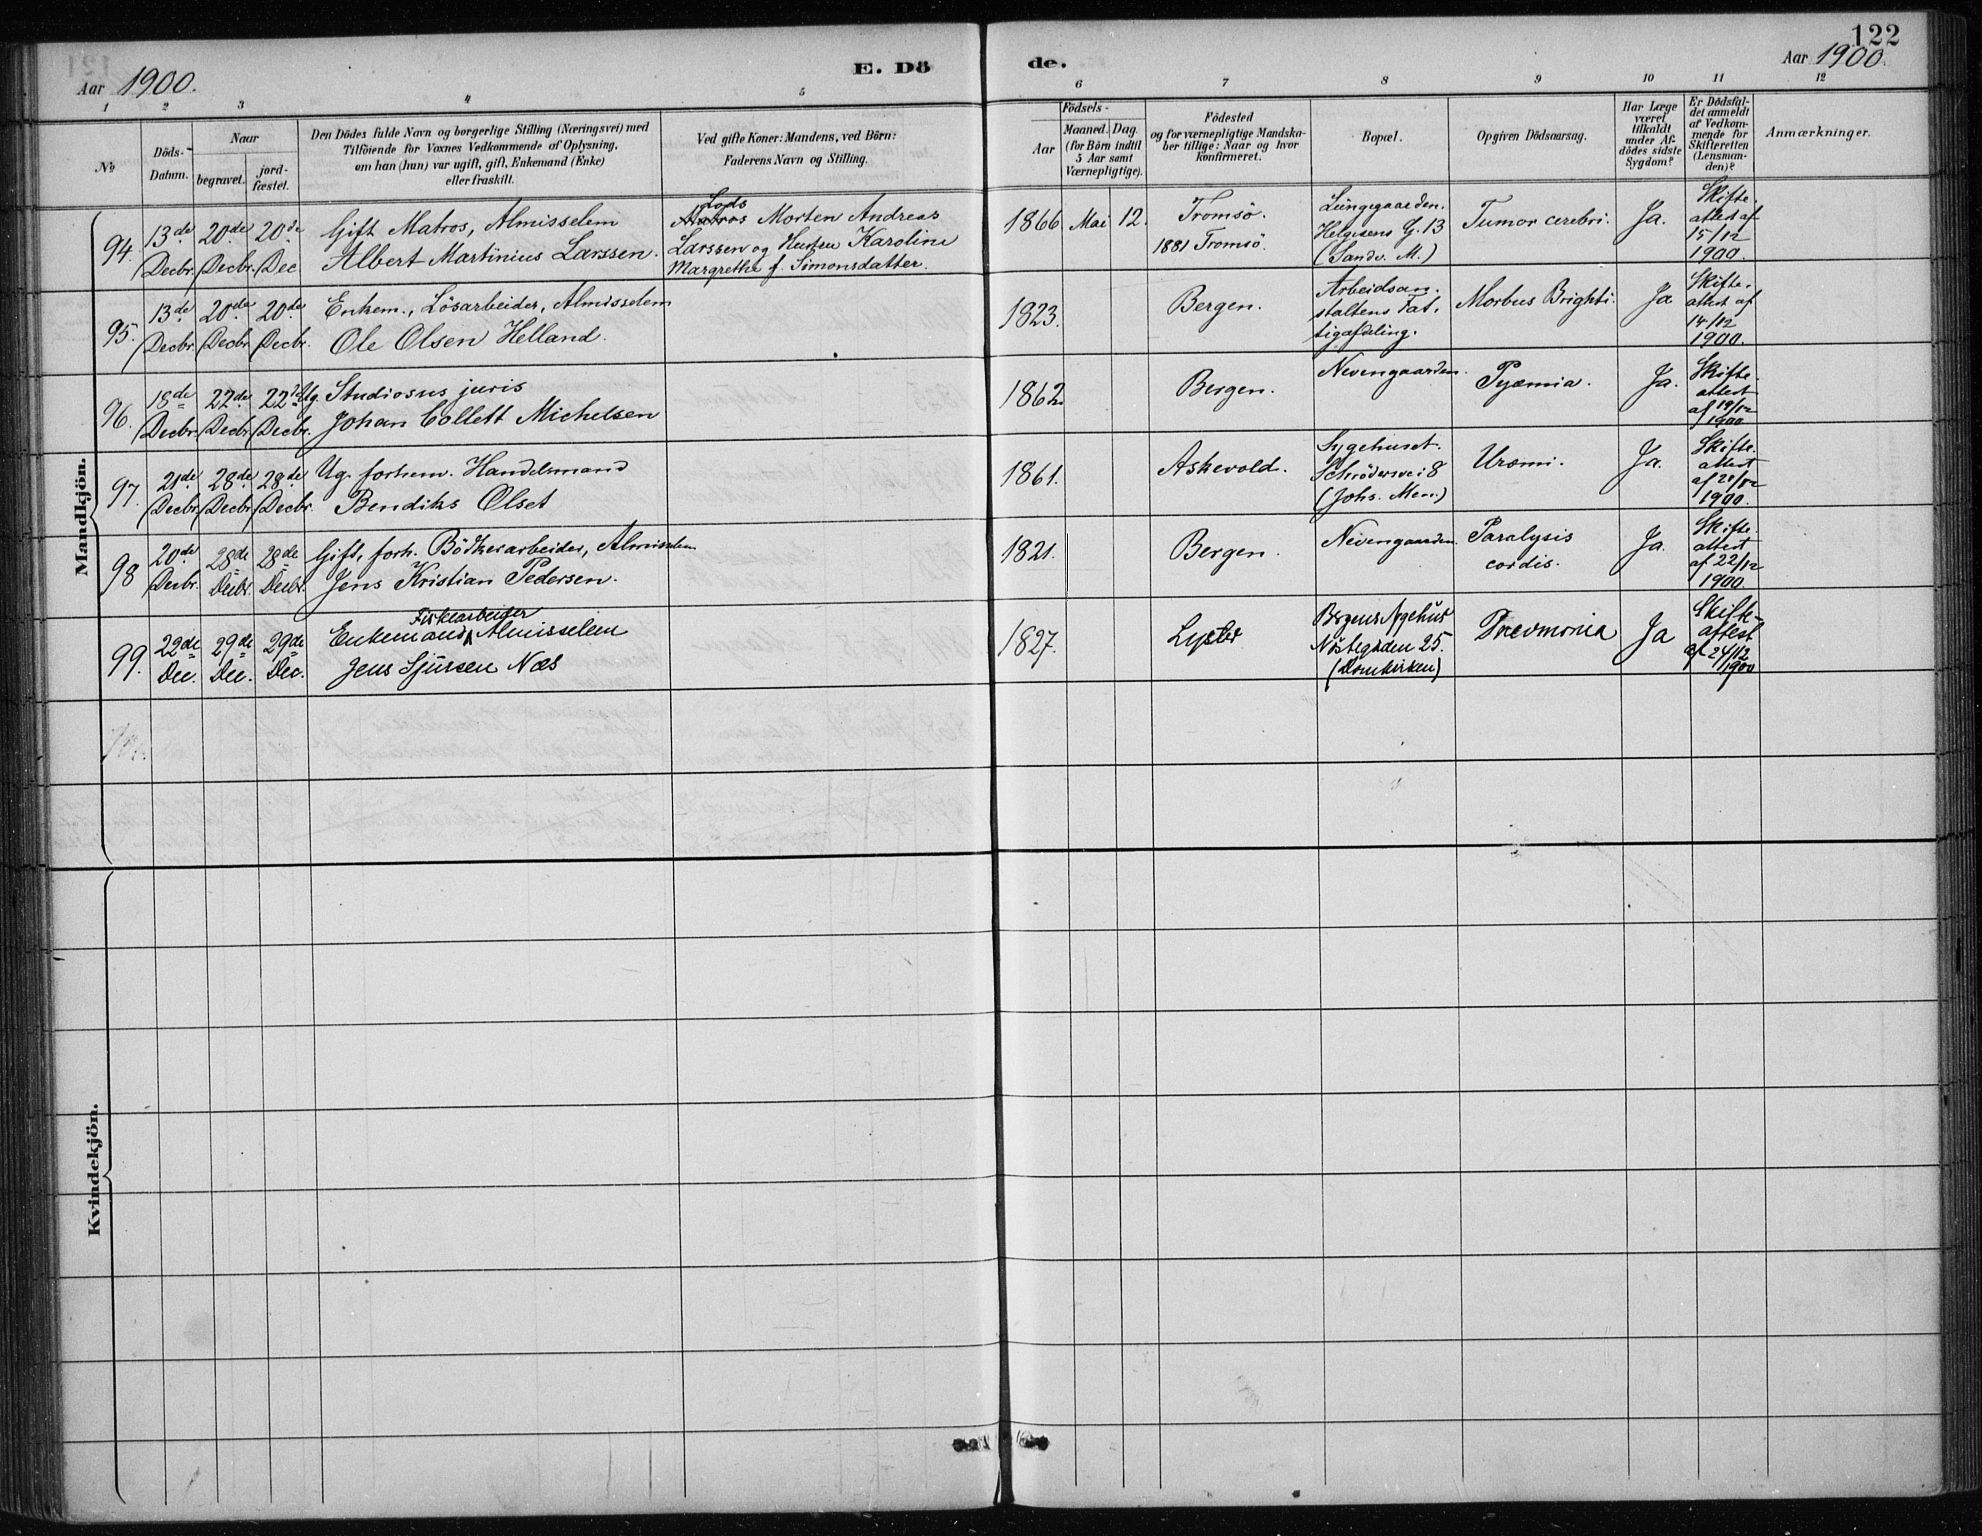 122
Aar 1900.
E. Dö
de.
Aar 1900.
1
2
3
4
5
6
7
8
9
10
11
12
No
Döds-
Datum.
Naar
begravet.
jord-
fæstet.
Den Dödes fulde Navn og borgerlige Stilling (Næringsvei) med
Tilföiende for Voxnes Vedkommende af Oplysning,
om han (hun) var ugift, gift, Enkemand (Enke)
eller fraskilt.
Ved gifte Koner: Mandens, ved Börn:
Faderens Navn og Stilling.
Födsels-
Aar
Maaned.
Dag.
(for Börn indtil
5 Aar samt
Værnepligtige).
Födested
og for værnepligtige Mandska-
ber tillige: Naar og hvor
konfirmeret.
Bopæl.
Opgiven Dödsaarsag.
Har Læge
været
tilkaldt
under Af-
dödes sidste
Sygdom?
Er Dödsfal-
det anmeldt
af Vedkom-
mende for
Skifteretten
(Lensman-
den)?
Anmærkninger.
Mandkjön.
94.
13de Decbr.
20de Decbr.
20de Dec
Gift Matros, Almisselem
Albert Martinius Larssen.
Lods
Matros Morten Andreas
Larssen og Hustru Karoline
Margrethe f. Simonsdatter.
1866
Mai
12.
Tromsö.
1881 Tromsö.
Lungegaarden.
Helgesens G. 13
(Sandv. M.)
Tumor cerebri.
Ja.
Skifte-
attest af
15/12
1900.
95.
13de Decbr.
20de Decbr.
20de Decbr.
Enkem., Lösarbeider, Almisselem
Ole Olsen Helland.
1823.
Bergen.
Arbeidsan-
staltens Fat-
tigafdeling.
Morbus Brighti.
Ja
Skifte-
attest af
14/12
1900.
96.
18de Decbr.
22de Decbr.
22de Decbr.
Ug. Studiosus juris
Johan Collett Michelsen
1862.
Bergen.
Nevengaarden.
Pyæmia.
Ja.
Skifte-
attest
af 19/12
1900
97.
21de Decbr.
28de Decbr.
28de Decbr.
Ug. forhem. Handelsmand
Bendiks Olset
1861.
Askevold.
Sygehuset.
Schrödersvei 8
(Johs. Men.)
Uræmi.
Ja.
Skifte-
attest
af 21/12
1900.
98
20de Decbr.
28de Decbr.
28de Decbr.
Gift, forh. Bödkerarbeider, Almisselem
Jens Kristian Pedersen.
1821.
Bergen.
Nevengaarden
Paralysis
cordis.
Ja.
Skifte-
attest
af 22/12
1900.
99.
22de Dec.
29de Dec.
29de Dec.
Fiskearbeider
Enkemand, Almisselem
Jens Sjursen Næs
1827.
Lyster
Bergens Sygehus
Nöstegaden 25.
(Domkirken)
Pneumonia
Ja
Skifte-
attest
af 24/12
1900
Kvindekjön.